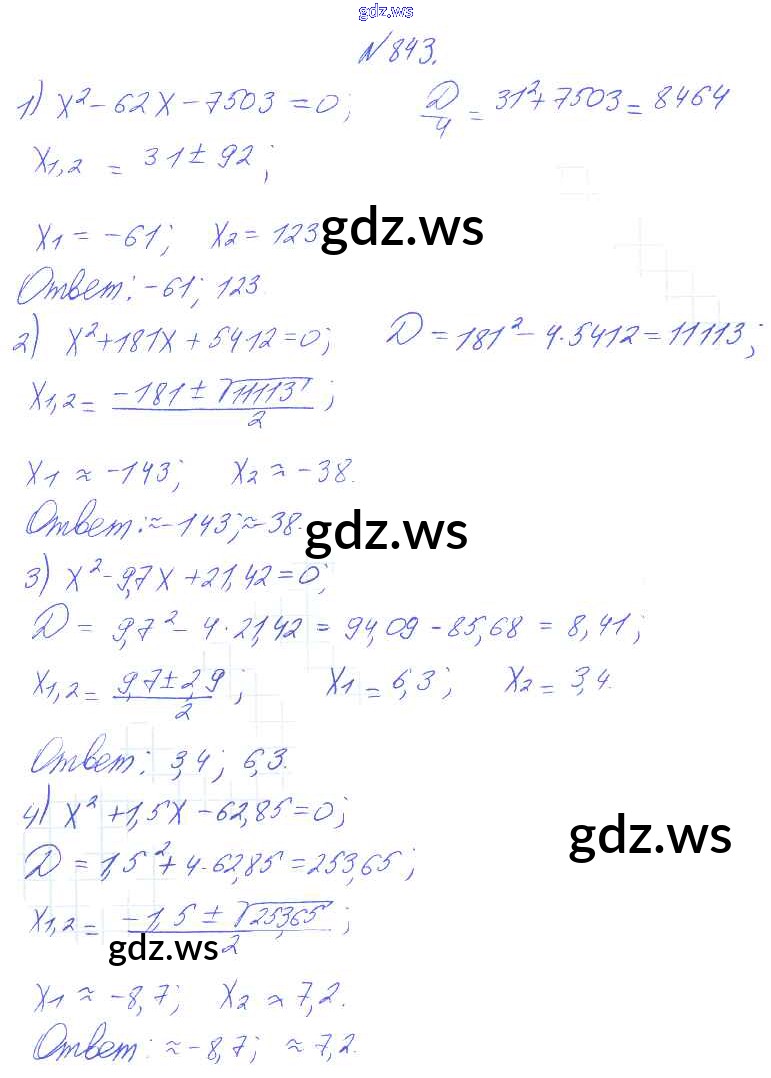 gdz.ws
N 843.
1) x² - 62x - 7503 = 0; D/4 = 31² + 7503 = 8464
x1,2 = 31 ± 92;
x1 = -61; x2 = 123
gdz.ws
Ответ: -61; 123.
2) x² + 181x + 5412 = 0; D = 181² - 4·5412 = 11113;
x1,2 = (-181 ± √11113)/2;
x1 ≈ -143; x2 ≈ -38.
Ответ: ≈ -143; ≈ -38.
gdz.ws
3) x² - 9,7x + 21,42 = 0;
D = 9,7² - 4·21,42 = 94,09 - 85,68 = 8,41;
x1,2 = (9,7 ± 2,9)/2; x1 = 6,3; x2 = 3,4.
Ответ: 3,4; 6,3.
4) x² + 1,5x - 62,85 = 0;
gdz.ws
D = 1,5² + 4·62,85 = 253,65;
x1,2 = (-1,5 ± √253,65)/2;
gdz.ws
x1 ≈ -8,7; x2 ≈ 7,2.
Ответ: ≈ -8,7; ≈ 7,2.